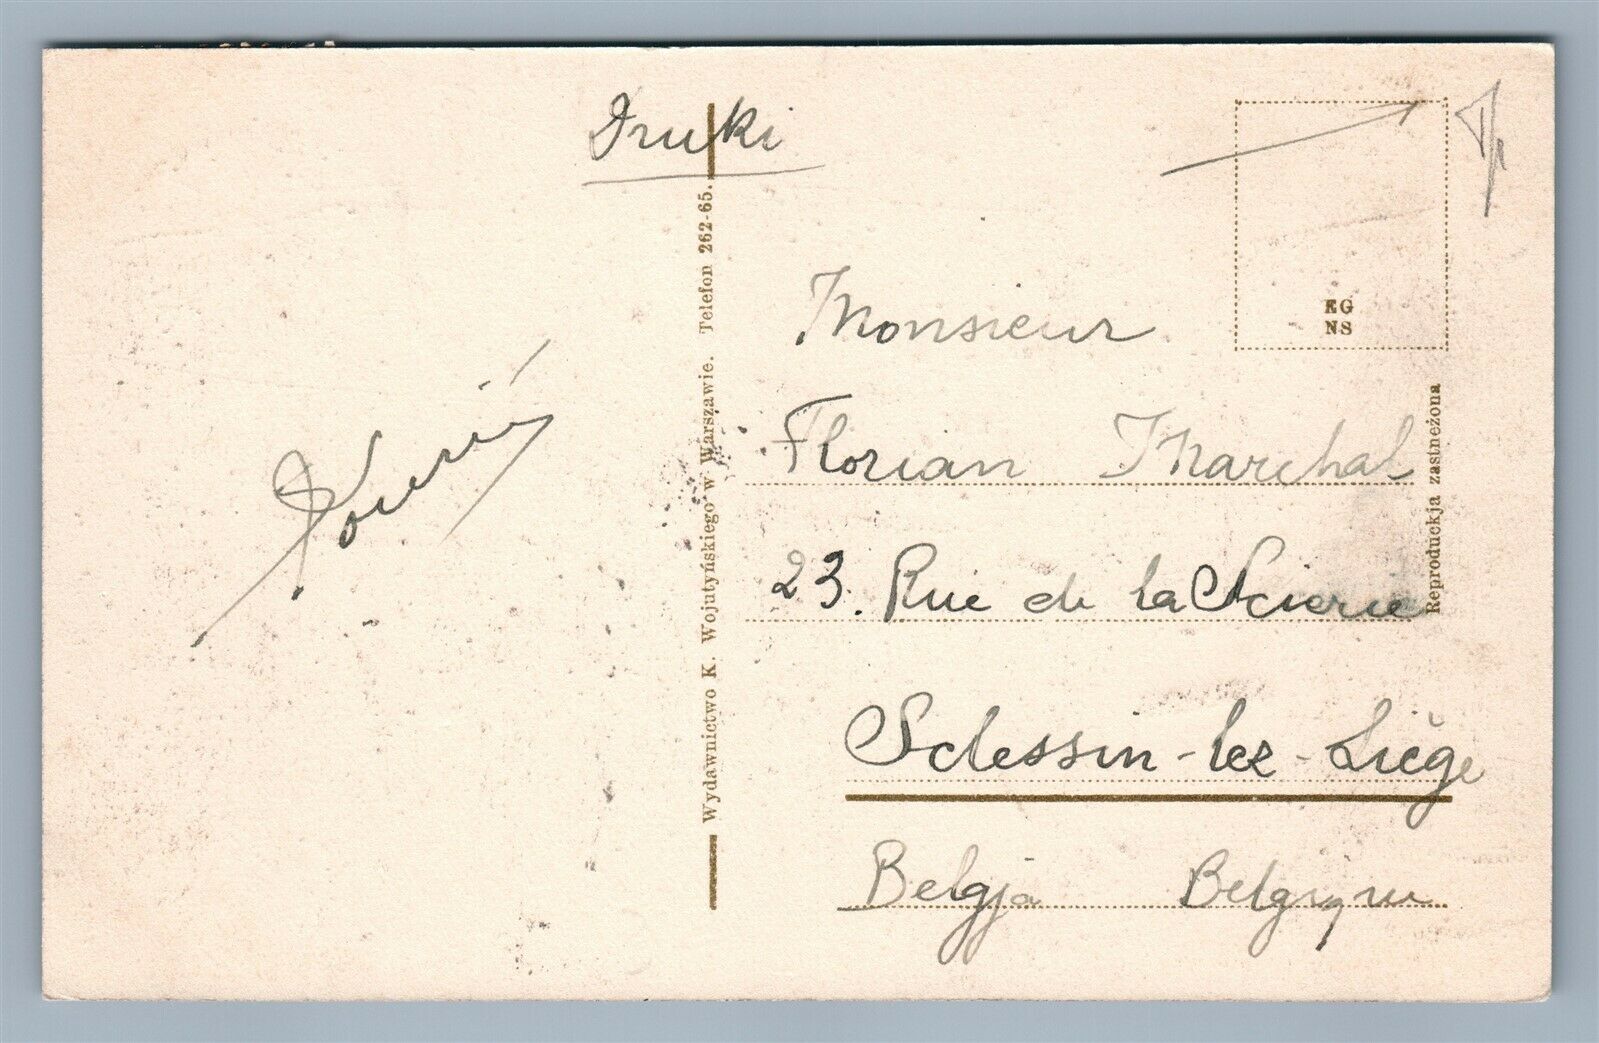 Druki
EG
NS
Monsieur
Florian Marchal
23. Rue de la Scierie
Sclessin-lez-Liège
Belgja Belgique
Wydawnictwo K. Wojutyńskiego w Warszawie. Telefon 262-65.
Reproduckja zastneżona